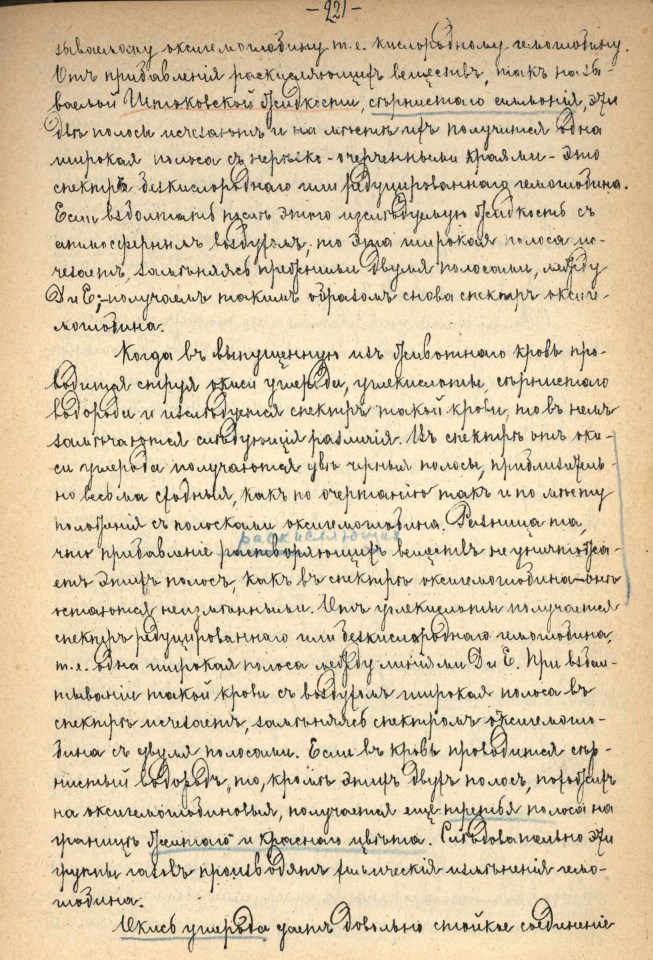 — 221 —
зываемому оксигемоглобину т.е. кислородному гемоглобину.
Отъ прибавленія раскисляющихъ веществъ, такъ назы-
ваемой Штоковской жидкости, сѣрнистаго аммонія, эти
двѣ полосы исчезаютъ и на мѣстѣ ихъ получится одна
широкая полоса съ нерѣзко-очерченными краями - это
спектръ безкислороднаго или редуцированнаго гемоглобина.
Если взболтать послѣ этого изслѣдуемую жидкость съ
атмосфернымъ воздухомъ, то эта широкая полоса ис-
чезаетъ, замѣняясь прежними двумя полосами, между
D и E; - получаемъ такимъ образомъ снова спектръ оксиге-
моглобина.
Когда въ выпущенную изъ животнаго кровь про-
водится струя окиси углерода, углекислоты, сѣрнистаго
водорода и изслѣдуется спектръ такой крови, то въ немъ
замѣчаются слѣдующія различія. Въ спектрѣ отъ оки-
си углерода получаются двѣ черныя полосы, приблизитель-
но весьма сходныя, какъ по очертанію такъ и по мѣсту
положенія съ полосками оксигемоглобина. Разница та,
раскисляющихъ
что прибавленіе растворяющихъ веществъ не уничтожа-
етъ этихъ полосъ, какъ въ спектрѣ оксигемоглобина - онѣ
остаются неизмѣнными. Отъ углекислоты получается
спектръ редуцированнаго или безкислороднаго гемоглобина,
т.е. одна широкая полоса между линіями D и E. При взбал-
тываніи такой крови съ воздухомъ широкая полоса въ
спектрѣ исчезаетъ, замѣняясь спектромъ оксигемогло-
бина съ двумя полосами. Если въ кровь проводится сѣр-
нистый водородъ, то, кромѣ этихъ двухъ полосъ, похожихъ
на оксигемоглобиновыя, получается ещё третья полоса на
границѣ желтаго и краснаго цвѣта. Слѣдовательно эти
группы газовъ производятъ химическія измѣненія гемо-
глобина.
Окись углерода даетъ довольно стойкое соединеніе